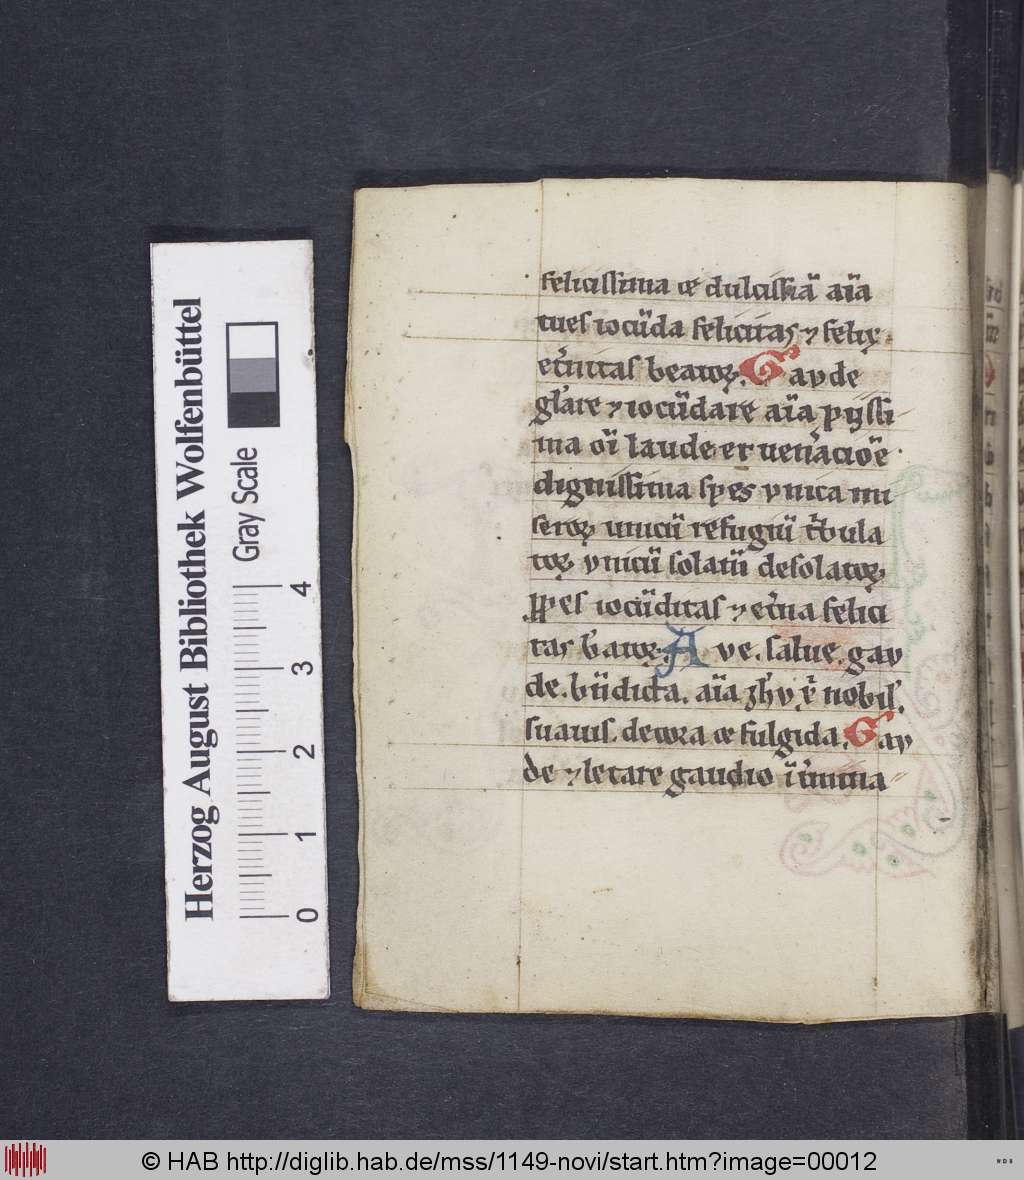 felicissima et dulcissīā aīa
tues iocūda felicitas ⁊ felix
et̄nitas beatoꝝ. Gaude
gl̄are ⁊ iocūdare aīa pijssi
ma oī laude et ven̄aciōe
dignissima spes vnica mi
seroꝝ vnicū refugiū t̄bula
toꝝ vnicū solatiū desolatoꝝ
spes iocūditas ⁊ et̄na felici
tas b̄atoꝝ. Ave. salue. gau
de. bn̄dicta. aīa
nobil'.
suauis. decora et fulgida. Gau
de ⁊ letare gaudio īt̄mina
Herzog August Bibliothek Wolfenbüttel
Gray Scale
0 1 2 3 4
© HAB http://diglib.hab.de/mss/1149-novi/start.htm?image=00012